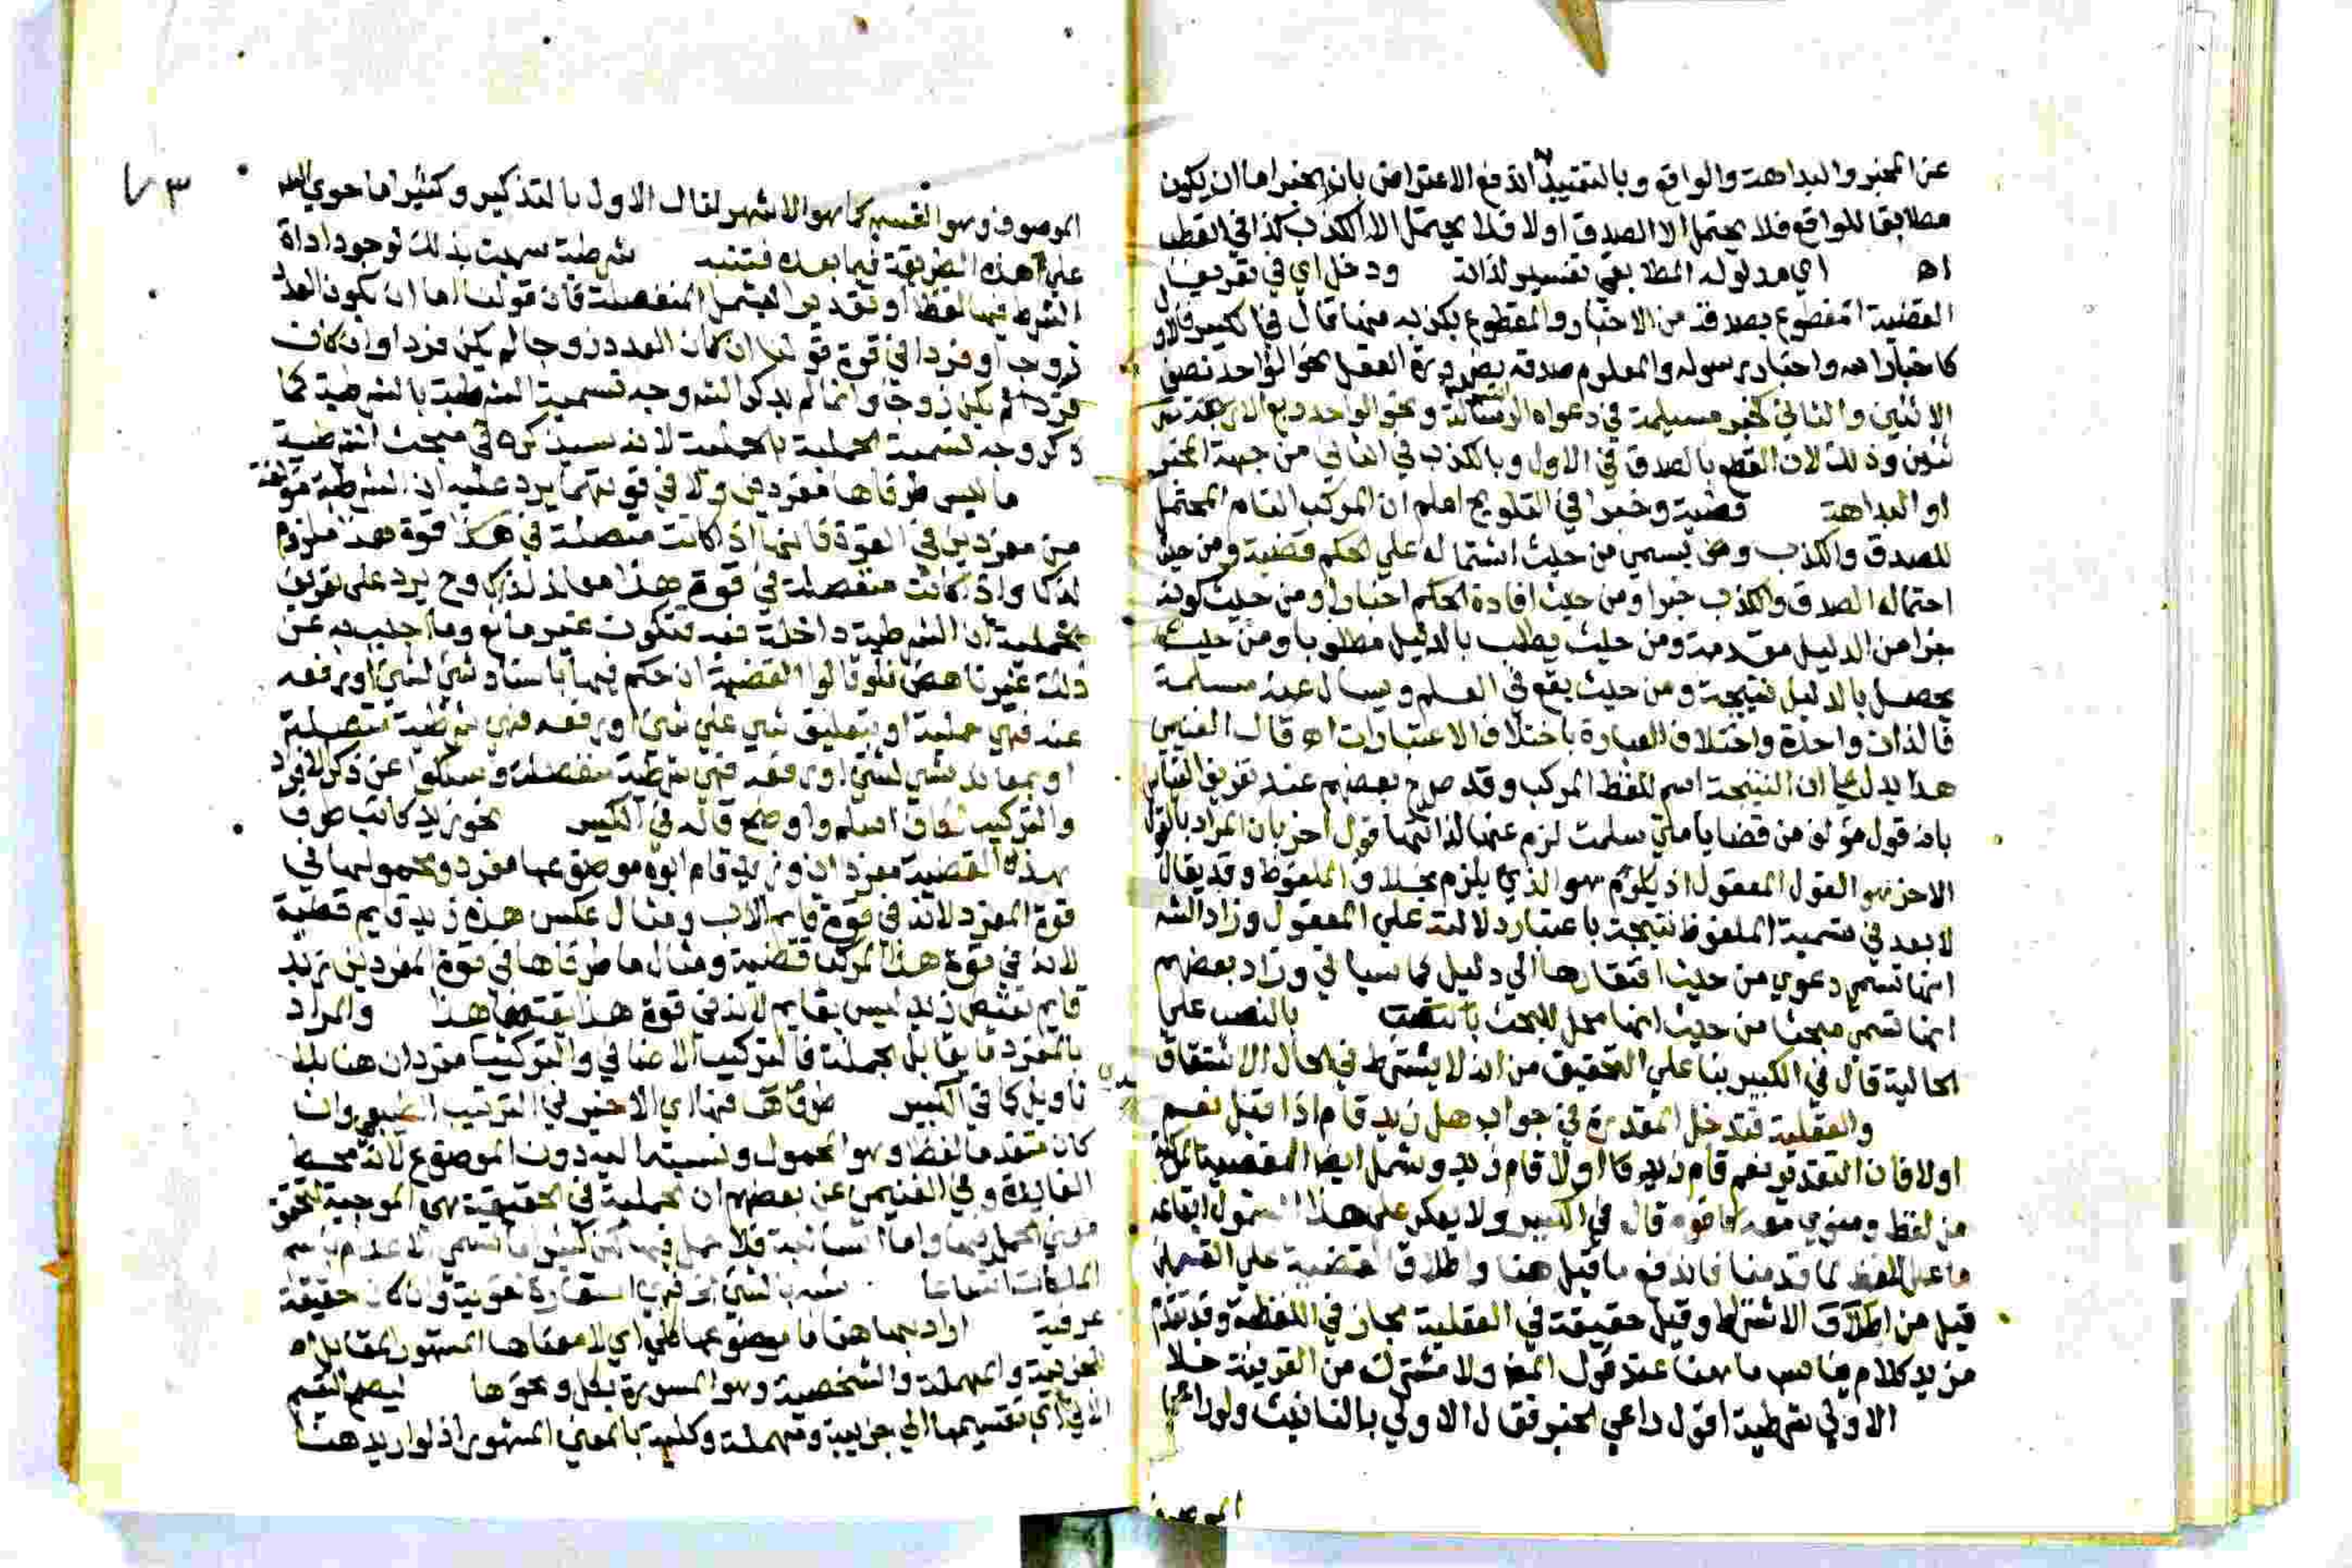 عن المخبر والبداهة والواقع وبالتقييد اندفع الاعتراض بان الخبر اما ان يكون
مطابقا للواقع فلا يحتمل الا الصدق اولا فلا يحتمل الا الكذب كذا في القطب
اه اي مدلوله المطابقي تفسير لذاته ودخل اي في تعريف
القضية المقطوع بصدقه من الاخبار والمقطوع بكذبه منها قال في الكبير فالاول
كاخبار الله واخبار رسوله والمعلوم صدقه بضرورة العقل نحو الواحد نصف
الاثنين والثاني كخبر مسيلمة في دعواه الرسالة ونحو الواحد ربع
وذلك لان القطع بالصدق في الاول وبالكذب في الثاني من جهة المخبر
او البداهة قضية وخبرا في التلويح اعلم ان المركب التام المحتمل
للصدق والكذب يسمي من حيث اشتماله علي الحكم قضية ومن حيث
احتماله الصدق والكذب خبرا ومن حيث افادة الحكم اخبارا ومن حيث كونه
جزا من الدليل مقدمة ومن حيث يطلب بالدليل مطلوبا ومن حيث
يحصل بالدليل نتيجة ومن حيث يقع في العلم ويسال عنه مسئلة
فالذات واحدة واختلاف العبارة باختلاف الاعتبارات اه قال الغنيمي
هذا يدل علي ان النتيجة اسم للفظ المركب وقد صرح بعضهم عند تعريف القياس
بانه قول مؤلف من قضايا متي سلمت لزم عنها لذاتها قول اخر بان المراد بالقول
الاخر هو القول المعقول اذ هو الذي يلزم بخلاف الملفوظ وقد يقال
لا بعد في تسمية الملفوظ نتيجة باعتبار دلالته علي المعقول وزاد الشه
انها تسمي دعوي من حيث افتقارها الي دليل كما سياتي وزاد بعضهم
انها تسمي مبحثا من حيث انها محل للبحث بالنصب علي
الحالية قال في الكبير بنا علي التحقيق من انه لا يشترط في الحال الاشتقاق
والعقلية فتدخل المقدرة في جواب هل زيد قام اذا قيل نعم
اولا فان التقدير نعم قام زيد اولا قام زيد وشمل ايضا القضية المركبة
من لفظ ومنوي معه قال في الكبير ولا يعكر علي هذا الشمول ايقاعه
ما علي اللفظ كما قدمنا فاندفع ما قيل هنا واطلاق القضية علي القسمين
قيل من اطلاق الاشتراك وقيل حقيقة في العقلية مجاز في اللفظية وقد تقدم
مزيد كلام ما هنا عند قول المص ولا مشترك من القرينة خلا
الاولي شرطية اقول راعي الخبر فقال الاولي بالتانيث ولو راعي
الموصوف
٣
الموصوف وهو القسم كما هو الاشهر لقال الاول بالتذكير وكثيرا ما جري
علي هذه الطريقة فيما بعده فتنبه شرطية سميت بذلك لوجود اداة
الشرط فيها لفظا او تقديرا ليشمل المنفصلة فان قولنا اما ان يكون العدد
زوجا او فردا في قوة قولنا ان كان العدد زوجا لم يكن فردا وان كان
فردا لم يكن زوجا وانما لم يذكر الشه وجه تسمية الشرطية بالشرطية كما
ذكر وجه تسمية الحملية بالحملية لانه سيذكره في مبحث الشرطية
ما ليس طرفاها مفردين ولا في قوتهما يرد عليه ان الشرطية مؤلفة
من مفردين في القوة فانها اذا كانت متصلة في قوة هذا ملزوم
لذاك واذا كانت منفصلة في قوة هذا معاند لذاك وح يرد علي تعريف
الحملية ان الشرطية داخلة فيه فتكون غير مانع وما اجيب به عن
ذلك غير ناهض فلو قالوا القضية ان حكم فيها باسناد شي لشي او رفعه
عنه فهي حملية او بتعليق شي علي شي او رفعه فهي شرطية متصلة
او بمعاندة شي لشي او رفعه فهي شرطية منفصلة وسكتوا عن ذكر الافراد
والتركيب لكان اسلم واوضح قاله في الكبير نحو زيد كاتب طرفا
هذه القضية مفردان وزيد قام ابوه موضوعها مفرد ومحمولها في
قوة المفرد لانه في قوة قايم الاب ومثال عكس هذه زيد قايم قضية
لانه في قوة هذا المركب قضية ومثال ما طرفاها في قوة المفردين زيد
قايم نقيض زيد ليس بقايم لانه في قوة هذا نقيض هذا والمراد
بالمفرد ما يقابل الجملة فالتركيب الاضافي والتركيب مفردان هنا بلا
تاويل كما في الكبير طرفاها فيها اي الاخير في الترتيب الطبيعي وان
كان متقدما لفظا وهو المحمول ونسبتها اليه دون الموضوع لانه محط
الفايدة وفي الغنيمي عن بعضهم ان الحملية في الحقيقة هي الموجبة لتحقق
معني الحمل فيها واما السالبة فلا حمل فيها
عرفية اراد بها هنا ما موضوعها كلي اي لا معناها المشهور المقابل
للجزيية والمهملة والشخصية وهو المسورة بكل ونحوها ليصح التقسيم
الاتي اي تقسيمها الي جزيية ومهملة وكلية بالمعني المشهور اذ لو اريد هنا